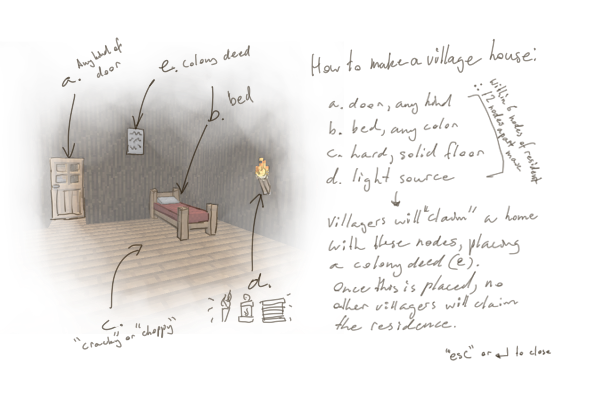 Any kind of
a. door
e. colony deed
b. bed
d.
c.
"crumbly" or "choppy"
How to make a village house:
a. door, any kind
b. bed, any color
c. hard, solid floor
d. light source
within 6 nodes of resident
∴ 12 nodes apart max
Villagers will "claim" a home
with these nodes, placing
a colony deed (e).
Once this is placed, no
other villagers will claim
the residence.
"esc" or ↵ to close